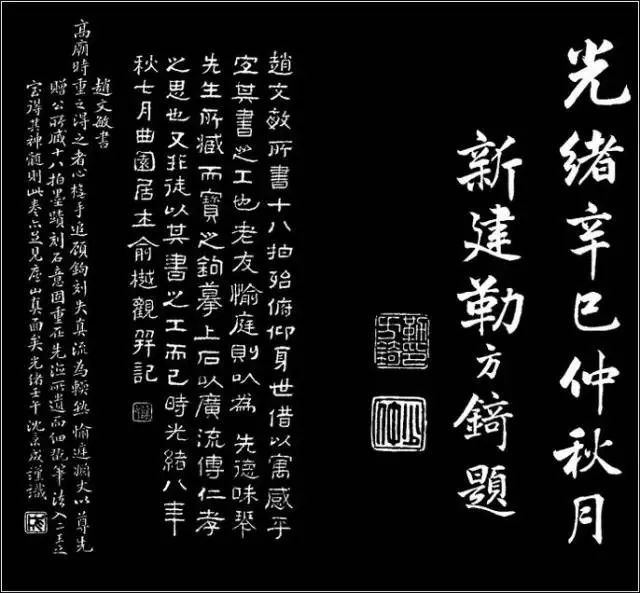 光緒辛巳仲秋月
新建勒方錡題
趙文敏所書十八拍殆俯仰身世借以寓感乎
宜其書之工也老友愉庭則以為先德味琴
先生所臧而寶之鉤摹上石以廣流傳仁孝
之思也又非徒以其書之工而已時光緒八年
秋七月曲園居士俞樾觀并記
趙文敏書
高廟時重之得之者心橅手追顧鉤刻失真流為輭熟愉庭姻丈以尊先
贈公所臧十八拍墨蹟刻石意固重在先澤所遺而細玩筆法入二王之
室得其神髓則此卷亦足見廬山真面矣光緒壬午沈秉成謹識